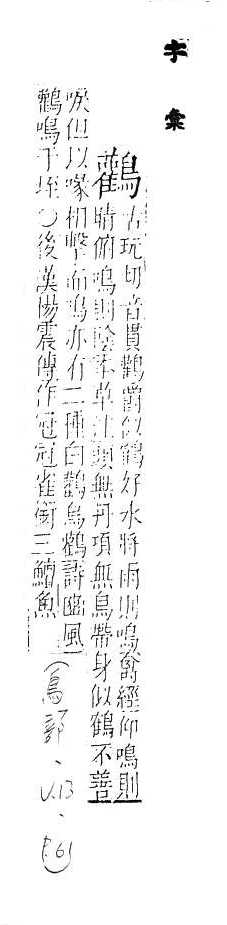 字彙
鸛
古玩切音貫鸛雀似鶴好水將雨則鳴禽經仰鳴則
晴俯鳴則陰 草 頭無丹項無烏帶身似鶴不善
唳但以喙相擊而鳴亦有二種白鸛烏鸛詩豳風
鸛鳴于垤〇後漢楊震傳作冠冠雀銜三鱣魚
(鳥部、V.13、P.61)